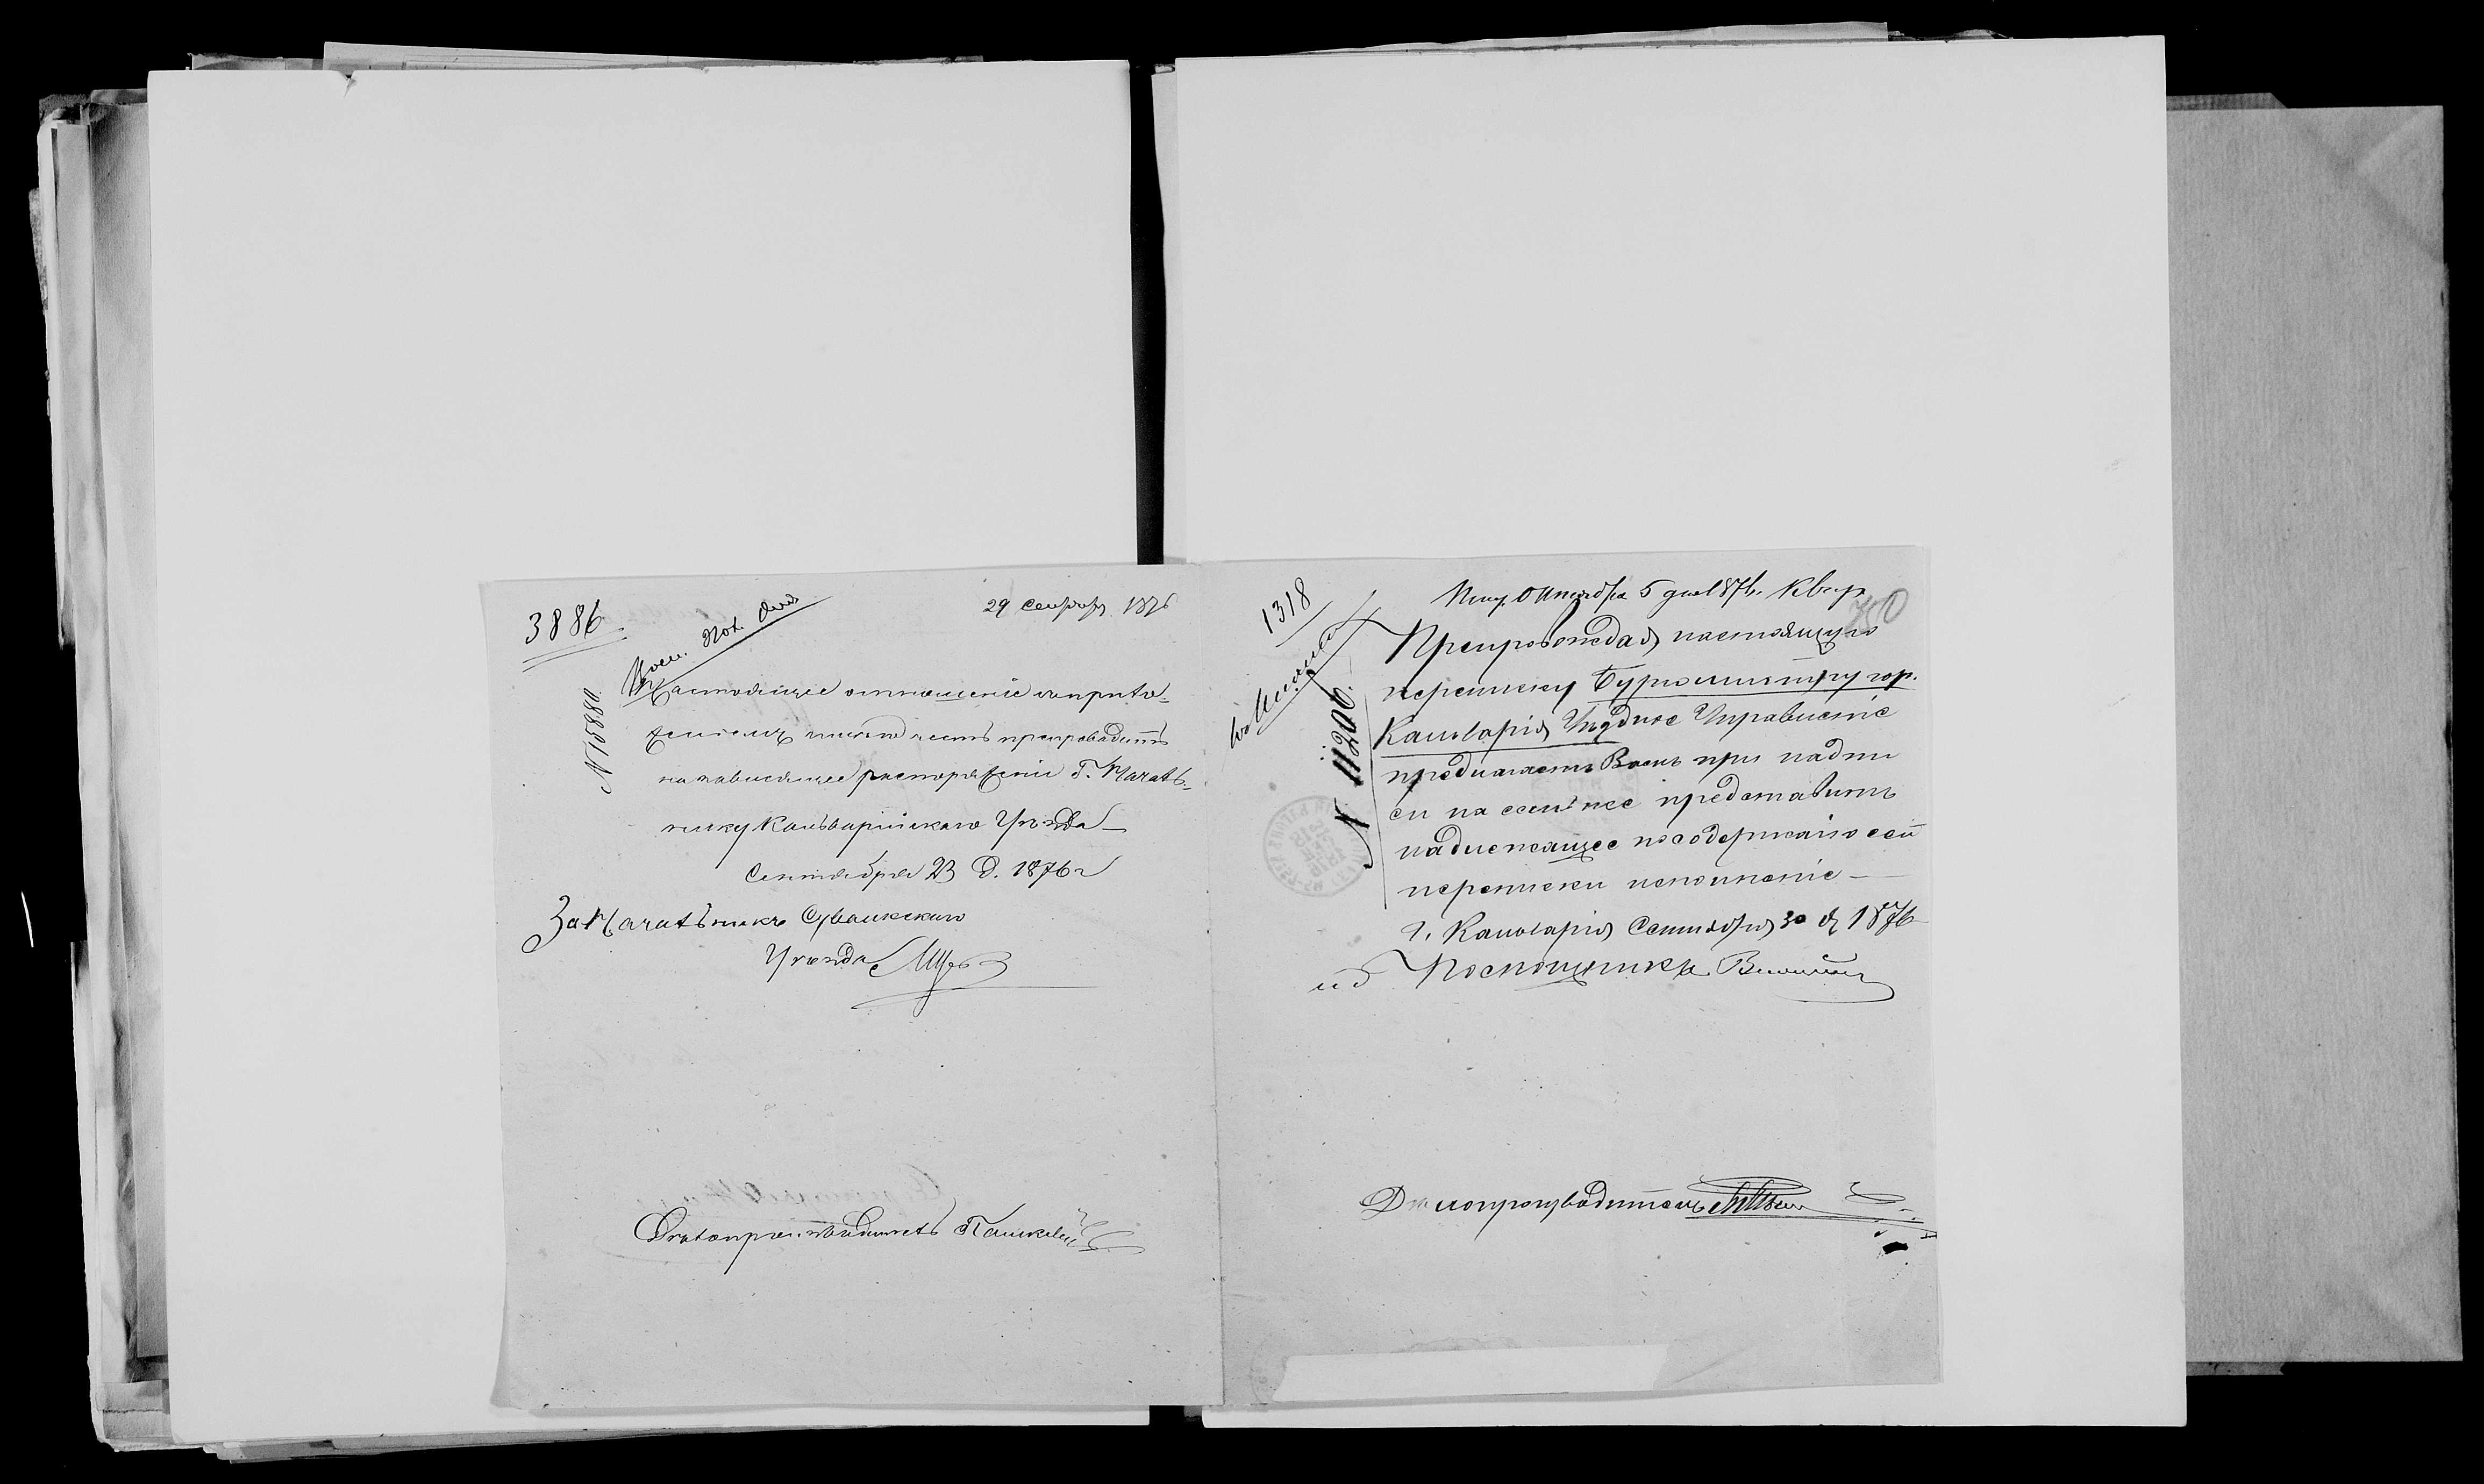 3886
29 Сентября 1876
№ 15880
Настоящее отношеніе съ прило-
женіемъ имѣю честь препроводить
на зависящее распоряженіе Г. Началь-
нику Кальварійскаго Уѣзда
Сентября 23 д. 1876 г
За Начальника Сувалкскаго
Уѣзда
Дѣлопроизводитель Пашкевичъ
1318
Октября 5 дня 1876.
№ 11206.
Препровождая настоящую
переписку Бурмистру гор.
Кальваріи, Уѣздное Управленіе
предлагаетъ Вамъ при надпи
си на семъ же представить
надлежащее по содержанію сей
переписки исполненіе
г. Кальварія Сентября 30 д 1876
и д Помощника
Дѣлопроизводитель